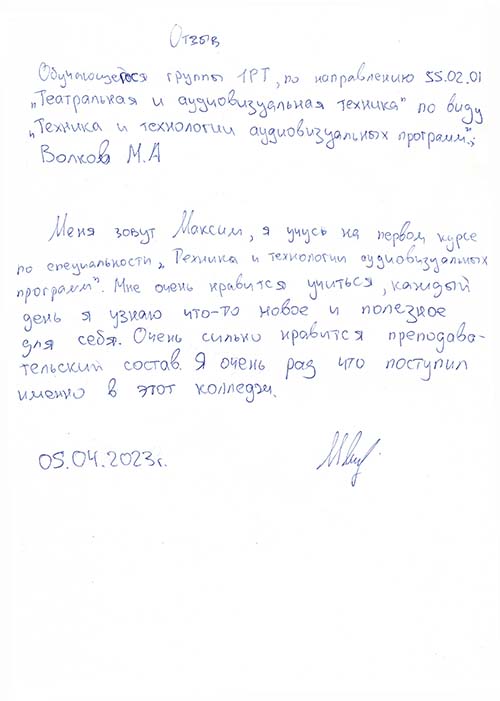 Отзыв
Обучающегося группы 1РТ, по направлению 55.02.01
„Театральная и аудиовизуальная техника" по виду
„Техника и технологии аудиовизуальных программ".;
Волков М.А
Меня зовут Максим, я учусь на первом курсе
по специальности „Техника и технологии аудиовизуальных
программ". Мне очень нравится учиться, каждый
день я узнаю что-то новое и полезное
для себя. Очень сильно нравится преподава-
тельский состав. Я очень раз что поступил
именно в этот колледж.
05.04.2023г.